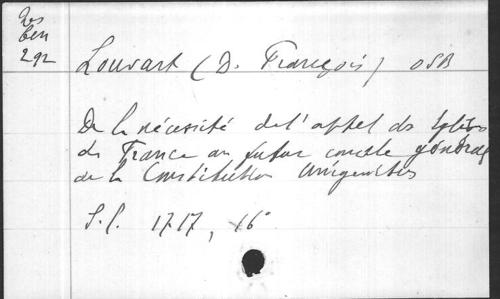 Res
Ben
292
Louvart (D. François) OSB
De la nécessité de l'appel des Eglises
de France au futur concile général
de la Constitution Unigenitus
S.l. 1717, 16°